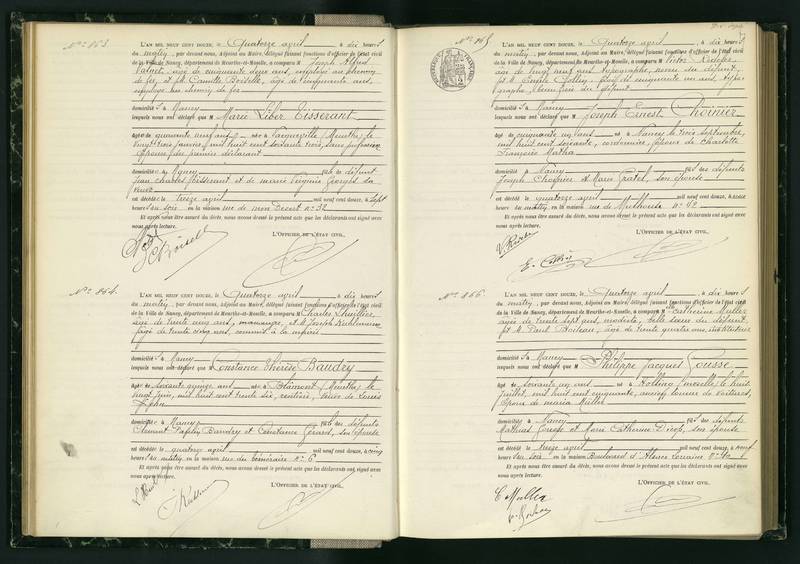 N° 863
L'AN MIL NEUF CENT DOUZE, le Quatorze avril, à dix heures
du matin, par devant nous, Adjoint au Maire, délégué faisant fonctions d'officier de l'état civil
de la Ville de Nancy, département de Meurthe-et-Moselle, a comparu M Joseph Alfred
âgé de cinquante deux ans, employé au chemin
de fer, et M. Camille Boidelle, âgé de cinquante ans,
employé au chemin de fer
domiciliés à Nancy
lesquels nous ont déclaré que M Marie Liber Tisserant
âgé de quarante neuf ans né à Vacqueville (Meurthe) le
vingt trois janvier mil huit cent soixante trois, sans profession
époux du premier déclarant
domicilié à Nancy fils de défunt
Jean Charles Tisserant et de Marie Virginie Georges sa
veuve
est décédé le treize avril mil neuf cent douze, à sept
heures du soir en la maison rue de mon Désert n° 32
Et après nous être assuré du décès, nous avons dressé le présent acte que les déclarants ont signé avec
nous après lecture.
L'OFFICIER DE L'ÉTAT CIVIL.
N° 864
L'AN MIL NEUF CENT DOUZE, le Quatorze avril, à dix heures
du matin, par devant nous, Adjoint au Maire, délégué faisant fonctions d'officier de l'état civil
de la Ville de Nancy, département de Meurthe-et-Moselle, a comparu M Charles Lhuillier
âgé de trente cinq ans, et M. Joseph
âgé de trente cinq ans, commis à la mairie
domiciliés à Nancy
lesquels nous ont déclaré que M Constance Thérèse Baudry
âgé de soixante quinze ans né à Blâmont (Meurthe) le
vingt juin mil huit cent trente six, rentière, veuve de Louis
domicilié à Nancy fils de défunts
Baudry et Constance Gérard, son épouse
est décédé le quatorze avril mil neuf cent douze, à cinq
heures du matin en la maison rue du Téméraire n° 6
Et après nous être assuré du décès, nous avons dressé le présent acte que les déclarants ont signé avec
nous après lecture.
L'OFFICIER DE L'ÉTAT CIVIL.
N° 865
L'AN MIL NEUF CENT DOUZE, le Quatorze avril, à dix heures
du matin, par devant nous, Adjoint au Maire, délégué faisant fonctions d'officier de l'état civil
de la Ville de Nancy, département de Meurthe-et-Moselle, a comparu M Victor
âgé de vingt neuf ans, typographe, neveu du défunt,
et M. Emile âgé de cinquante un ans, typo-
graphe, beau frère du défunt
domiciliés à Nancy
lesquels nous ont déclaré que M Joseph Ernest Choinier
âgé de cinquante un ans né à Nancy le trois septembre,
mil huit cent soixante, cordonnier, époux de Charlotte
Françoise Matha
domicilié à Nancy fils de défunts
Joseph Choinier et Marie Gratel, son épouse
est décédé le quatorze avril mil neuf cent douze, à
heures du matin en la maison rue de Mulhouse n° 42
Et après nous être assuré du décès, nous avons dressé le présent acte que les déclarants ont signé avec
nous après lecture.
L'OFFICIER DE L'ÉTAT CIVIL.
N° 866
L'AN MIL NEUF CENT DOUZE, le Quatorze avril, à dix heures
du matin, par devant nous, Adjoint au Maire, délégué faisant fonctions d'officier de l'état civil
de la Ville de Nancy, département de Meurthe-et-Moselle, a comparu M Catherine Muller
âgée de trente sept ans, modiste, belle soeur du défunt,
et M. Paul Boileau, âgé de trente quatre ans, instituteur
domiciliés à Nancy
lesquels nous ont déclaré que M Philippe Jacques Gousse
âgé de soixante un ans né à Holling (Moselle) le huit
juillet, mil huit cent cinquante, ancien loueur de voitures,
époux de Maria Muller
domicilié à Nancy fils de défunts
Mathias Gousse et Marie Catherine son épouse
est décédé le treize avril mil neuf cent douze, à neuf
heures du soir en la maison Boulevard d'Alsace Lorraine
Et après nous être assuré du décès, nous avons dressé le présent acte que les déclarants ont signé avec
nous après lecture.
L'OFFICIER DE L'ÉTAT CIVIL.
C Muller